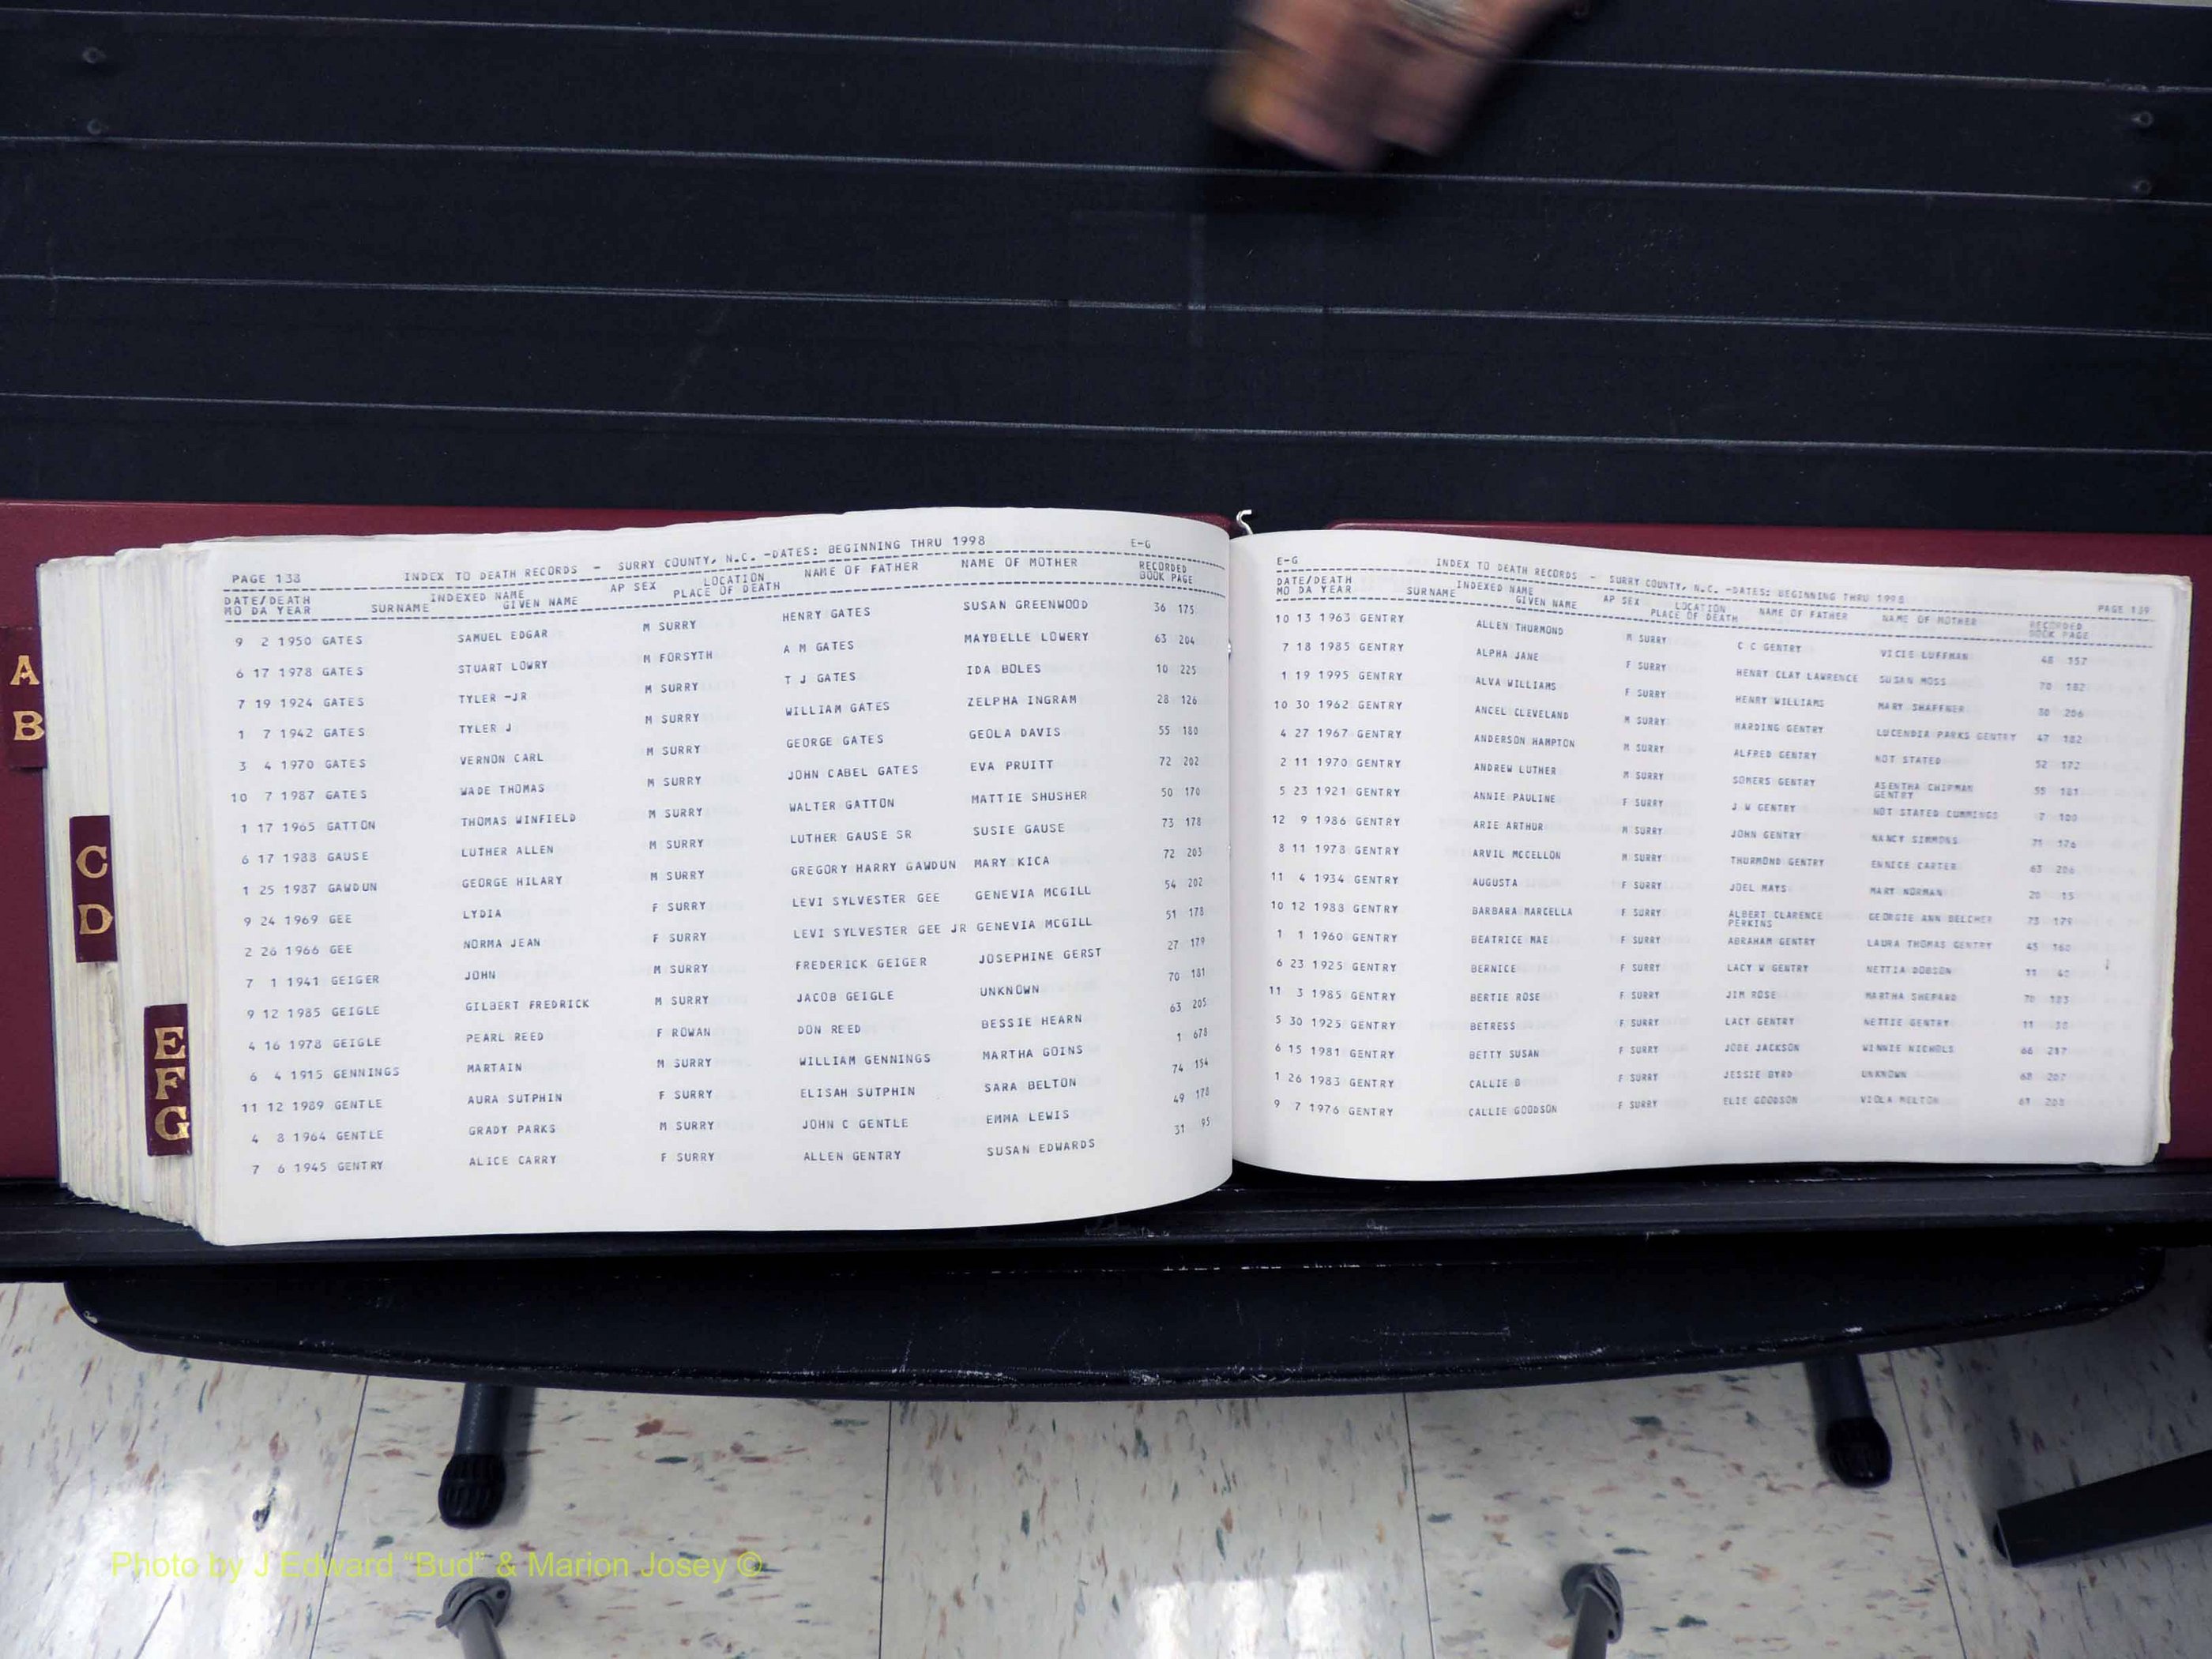 A
B
C
D
E
F
G
PAGE 138 INDEX TO DEATH RECORDS - SURRY COUNTY, N.C. -DATES: BEGINNING THRU 1998 E-G
DATE/DEATH INDEXED NAME AP SEX LOCATION NAME OF FATHER NAME OF MOTHER RECORDED
MO DA YEAR SURNAME GIVEN NAME PLACE OF DEATH BOOK PAGE
9 2 1950 GATES SAMUEL EDGAR M SURRY HENRY GATES SUSAN GREENWOOD 36 175
6 17 1978 GATES STUART LOWRY M FORSYTH A M GATES MAYBELLE LOWERY 63 204
7 19 1924 GATES TYLER -JR M SURRY T J GATES IDA BOLES 10 225
1 7 1942 GATES TYLER J M SURRY WILLIAM GATES ZELPHA INGRAM 28 126
3 4 1970 GATES VERNON CARL M SURRY GEORGE GATES GEOLA DAVIS 55 180
10 7 1987 GATES WADE THOMAS M SURRY JOHN CABEL GATES EVA PRUITT 72 202
1 17 1965 GATTON THOMAS WINFIELD M SURRY WALTER GATTON MATTIE SHUSHER 50 170
6 17 1988 GAUSE LUTHER ALLEN M SURRY LUTHER GAUSE SR SUSIE GAUSE 73 178
1 25 1987 GAWDUN GEORGE HILARY M SURRY GREGORY HARRY GAWDUN MARY KICA 72 203
9 24 1969 GEE LYDIA F SURRY LEVI SYLVESTER GEE GENEVIA MCGILL 54 202
2 26 1966 GEE NORMA JEAN F SURRY LEVI SYLVESTER GEE JR GENEVIA MCGILL 51 178
7 1 1941 GEIGER JOHN M SURRY FREDERICK GEIGER JOSEPHINE GERST 27 179
9 12 1985 GEIGLE GILBERT FREDRICK M SURRY JACOB GEIGLE UNKNOWN 70 181
4 16 1978 GEIGLE PEARL REED F ROWAN DON REED BESSIE HEARN 63 205
6 4 1915 GENNINGS MARTAIN M SURRY WILLIAM GENNINGS MARTHA GOINS 1 678
11 12 1989 GENTLE AURA SUTPHIN F SURRY ELISAH SUTPHIN SARA BELTON 74 154
4 8 1964 GENTLE GRADY PARKS M SURRY JOHN C GENTLE EMMA LEWIS 49 178
7 6 1945 GENTRY ALICE CARRY F SURRY ALLEN GENTRY SUSAN EDWARDS 31 95
E-G INDEX TO DEATH RECORDS - SURRY COUNTY, N.C. -DATES: BEGINNING THRU 1998 PAGE 139
DATE/DEATH INDEXED NAME AP SEX LOCATION NAME OF FATHER NAME OF MOTHER RECORDED
MO DA YEAR SURNAME GIVEN NAME PLACE OF DEATH BOOK PAGE
10 13 1963 GENTRY ALLEN THURMOND M SURRY C C GENTRY VICIE LUFFMAN 48 157
7 18 1985 GENTRY ALPHA JANE F SURRY HENRY CLAY LAWRENCE SUSAN MOSS 70 182
1 19 1995 GENTRY ALVA WILLIAMS F SURRY HENRY WILLIAMS MARY SHAFFNER 80 206
10 30 1962 GENTRY ANCEL CLEVELAND M SURRY HARDING GENTRY LUCENDIA PARKS GENTRY 47 182
4 27 1967 GENTRY ANDERSON HAMPTON M SURRY ALFRED GENTRY NOT STATED 52 172
2 11 1970 GENTRY ANDREW LUTHER M SURRY SOMERS GENTRY ASENTHA CHIPMAN GENTRY 55 181
5 23 1921 GENTRY ANNIE PAULINE F SURRY J W GENTRY NOT STATED CUMMINGS 7 100
12 9 1986 GENTRY ARIE ARTHUR M SURRY JOHN GENTRY NANCY SIMMONS 71 176
8 11 1978 GENTRY ARVIL MCCELLON M SURRY THURMOND GENTRY ENNICE CARTER 63 206
11 4 1934 GENTRY AUGUSTA F SURRY JOEL MAYS MARY NORMAN 20 15
10 12 1988 GENTRY BARBARA MARCELLA F SURRY ALBERT CLARENCE PERKINS GEORGIE ANN BELCHER 73 179
1 1 1960 GENTRY BEATRICE MAE F SURRY ABRAHAM GENTRY LAURA THOMAS GENTRY 45 160
6 23 1925 GENTRY BERNICE F SURRY LACY W GENTRY NETTIA DOBSON 11
11 3 1985 GENTRY BERTIE ROSE F SURRY JIM ROSE MARTHA SHEPARD 70 183
5 30 1925 GENTRY BETRESS F SURRY LACY GENTRY NETTIE GENTRY 11
6 15 1981 GENTRY BETTY SUSAN F SURRY JOBE JACKSON WINNIE NICHOLS 66 217
1 26 1983 GENTRY CALLIE B F SURRY JESSIE BYRD UNKNOWN 68 207
9 7 1976 GENTRY CALLIE GOODSON F SURRY ELIE GOODSON VIOLA MELTON 61 203
Photo by J Edward “Bud” & Marion Josey ©